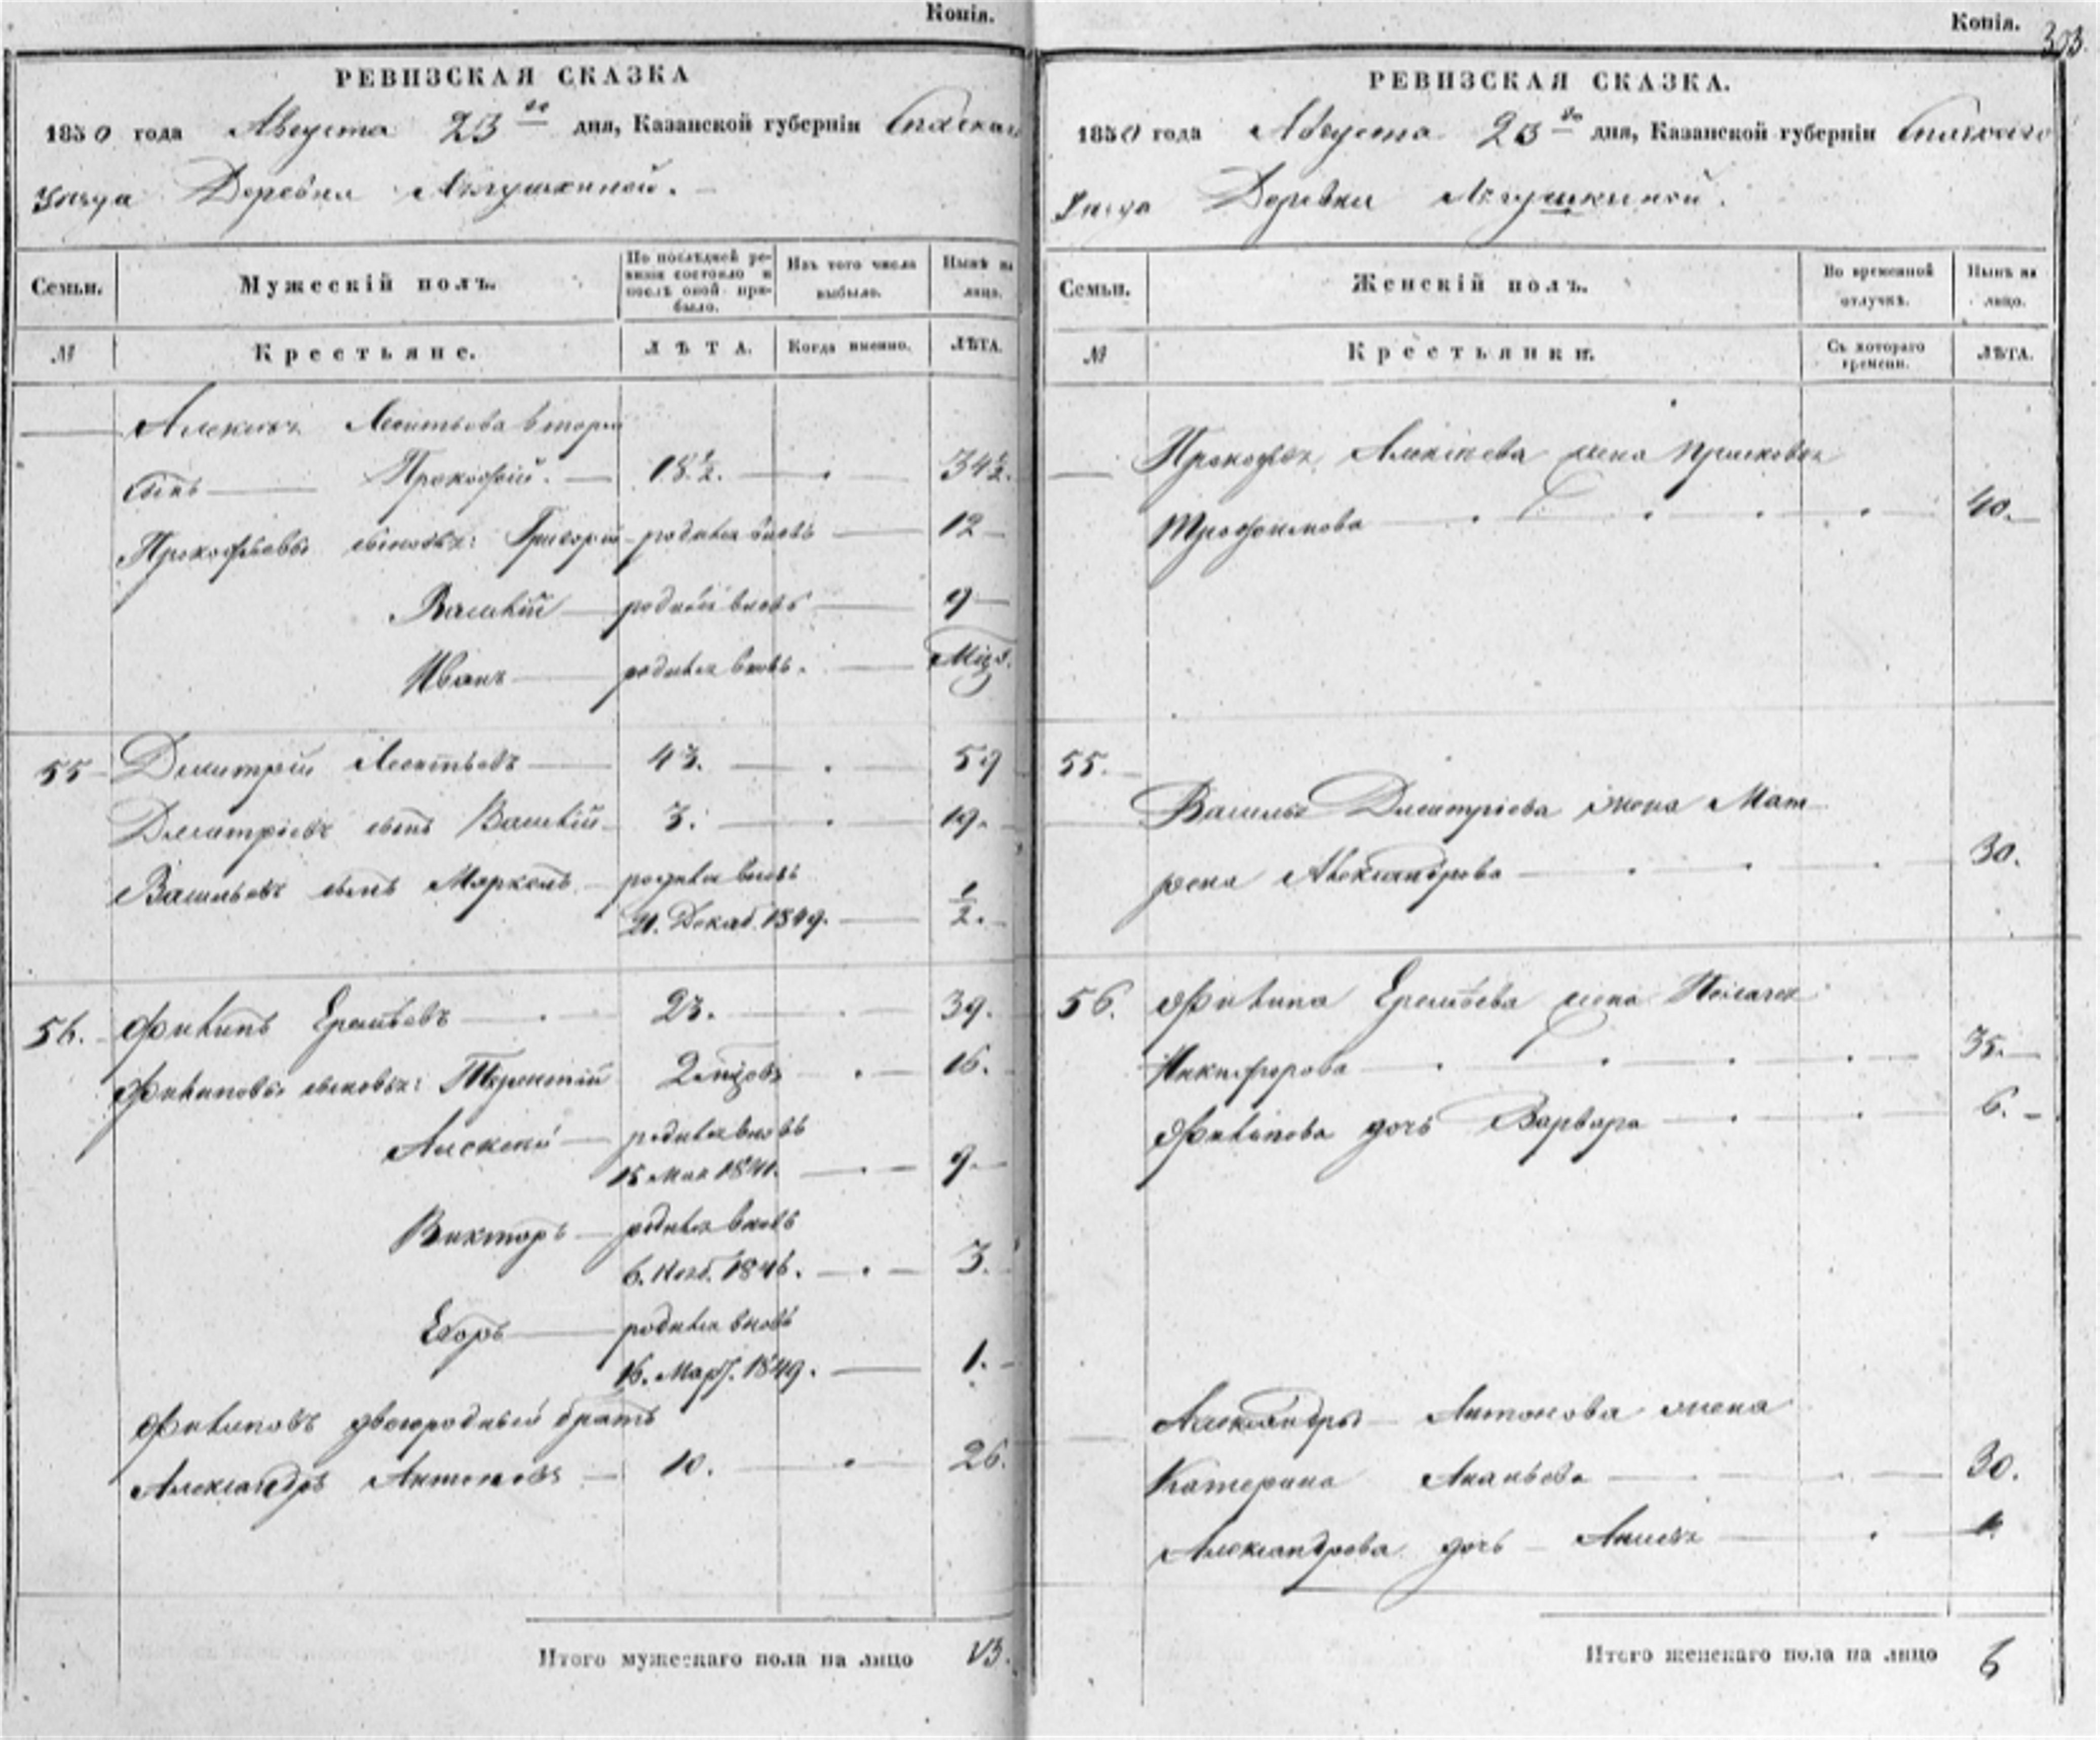 Копія.
РЕВИЗСКАЯ СКАЗКА
1850 года Августа 23го дня, Казанской губерніи Спаскаго
Уезда Деревни
Семьи. Мужескій полъ. По послѣдней ревизіи состояло и послѣ оной прибыло. Изъ того числа выбыло. Нынѣ на лицо.
№ Крестьяне. ЛѢТА. Когда именно. ЛѢТА.
Алексѣя Леонтьева втораго
сынъ Прокофій. 18 1/2. 34 1/2.
Прокофьевы сыновья: Григорій родился вновь 12
Василій родился вновь 9
Иванъ родился вновь. Мцо.
55 Дмитрій Леонтьевъ 43. 59
Дмитріевъ сынъ Василій 3. 19.
Васильевъ сынъ Маркелъ родился вновь
21. Декаб. 1849. 1/2.
56. Филипъ Еремѣевъ 23. 39.
Филиповы сыновья: Терентій 2 мцовъ 16.
Алексѣй родился вновь
15 Мая 1841. 9.
Викторъ родился вновь
6. Нояб. 1846. 3.
Егоръ родился вновь
16. Март. 1849. 1.
Филиповъ двоюродный братъ
Александръ Антоновъ 10. 26.
Итого мужескаго пола на лицо 13.
Копія.
303.
РЕВИЗСКАЯ СКАЗКА.
1850 года Августа 23го дня, Казанской губерніи Спаскаго
Уезда Деревни
Семьи. Женскій полъ. Во временной отлучкѣ. Нынѣ на лицо.
№ Крестьянки. Съ котораго времени. ЛѢТА.
Прокофья Алексѣева жена Прасковья
Трофимова 40.
55.
Василья Дмитріева жена Мат
рена Александрова 30.
56. Филипа Еремѣева жена Пелагея
Никифорова 35.
Филипова дочь Варвара 6.
Александры Антонова жена
Катерина Ананьева 30.
Александрова дочь 1.
Итого женскаго пола на лицо 6